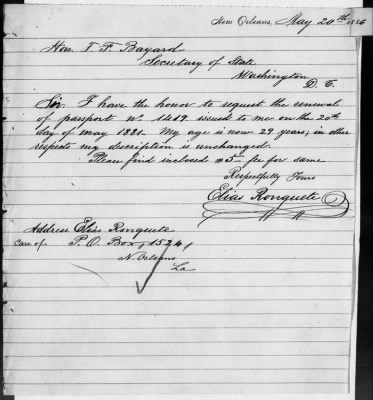 New Orleans, May 20th 1886
Hon. T. F. Bayard
Secretary of State
Washington
D. C.
Sir. I have the honor to request the renewal
of passport No. 1209 issued to me on the 20th
day of May 1881. My age is now 29 years, in other
respects my description is unchanged.
Please find inclosed $5 — for same
Respectfully Yours
Elias Ronquete
Address Elias Ronquete
Care of P. O. Box, 1524,
N. Orleans
La